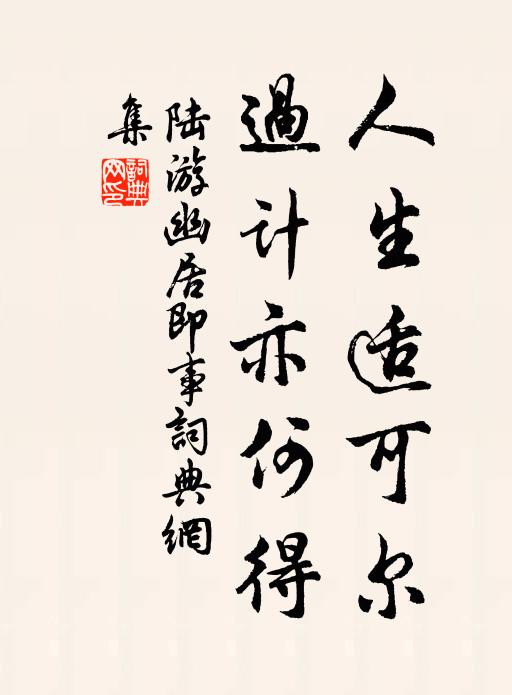 人生适可尔
過计亦何得
陆游幽居即事詞典網
集
詞典
网印